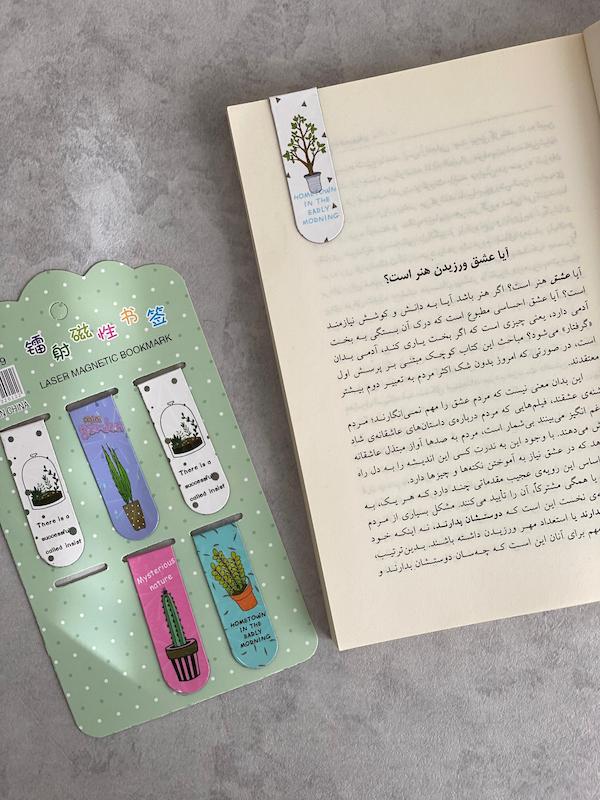 镭射磁性书签
LASER MAGNETIC BOOKMARK
9
CHINA
There is a
successful
called insist
There is a
successful
called insist
Mysterious
nature
HOMETOWN
IN THE
EARLY
MORNING
HOMETOWN
IN THE
EARLY
MORNING
آیا عشق ورزیدن هنر است؟
آیا عشق هنر است؟ اگر هنر باشد آیا به دانش و کوشش نیازمند
است؟ آیا عشق احساسی مطبوع است که درک آن بستگی به بخت
آدمی دارد، یعنی چیزی است که اگر بخت یاری کند، آدمی بدان
«گرفتار» می‌شود؟ مباحث این کتاب کوچک مبتنی بر پرسش اول
است، در صورتی که امروز بدون شک اکثر مردم به تعبیر دوم بیشتر
معتقدند.
این بدان معنی نیست که مردم عشق را مهم نمی‌انگارند؛ مردم
شنه‌ی عشقند، فیلم‌هایی که مردم درباره‌ی داستان‌های عاشقانه‌ی شاد
غم انگیز می‌بینند بی‌شمار است، مردم به صدها آواز مبتذل عاشقانه
ش می‌دهند. با وجود این به ندرت کسی این اندیشه را به دل راه
هد که در عشق نیاز به آموختن نکته‌ها و چیزها دارد.
اساس این رویه‌ی عجیب مقدماتی چند دارد که هر یک، به
یا همگی مشترکاً، آن را تأیید می‌کنند. مشکل بسیاری از مردم
ه‌ی نخست این است که دوستشان بدارند، نه اینکه خود
دارند یا استعداد مهر ورزیدن داشته باشند. بدین‌ترتیب،
مهم برای آنان این است که چه‌سان دوستشان بدارند و